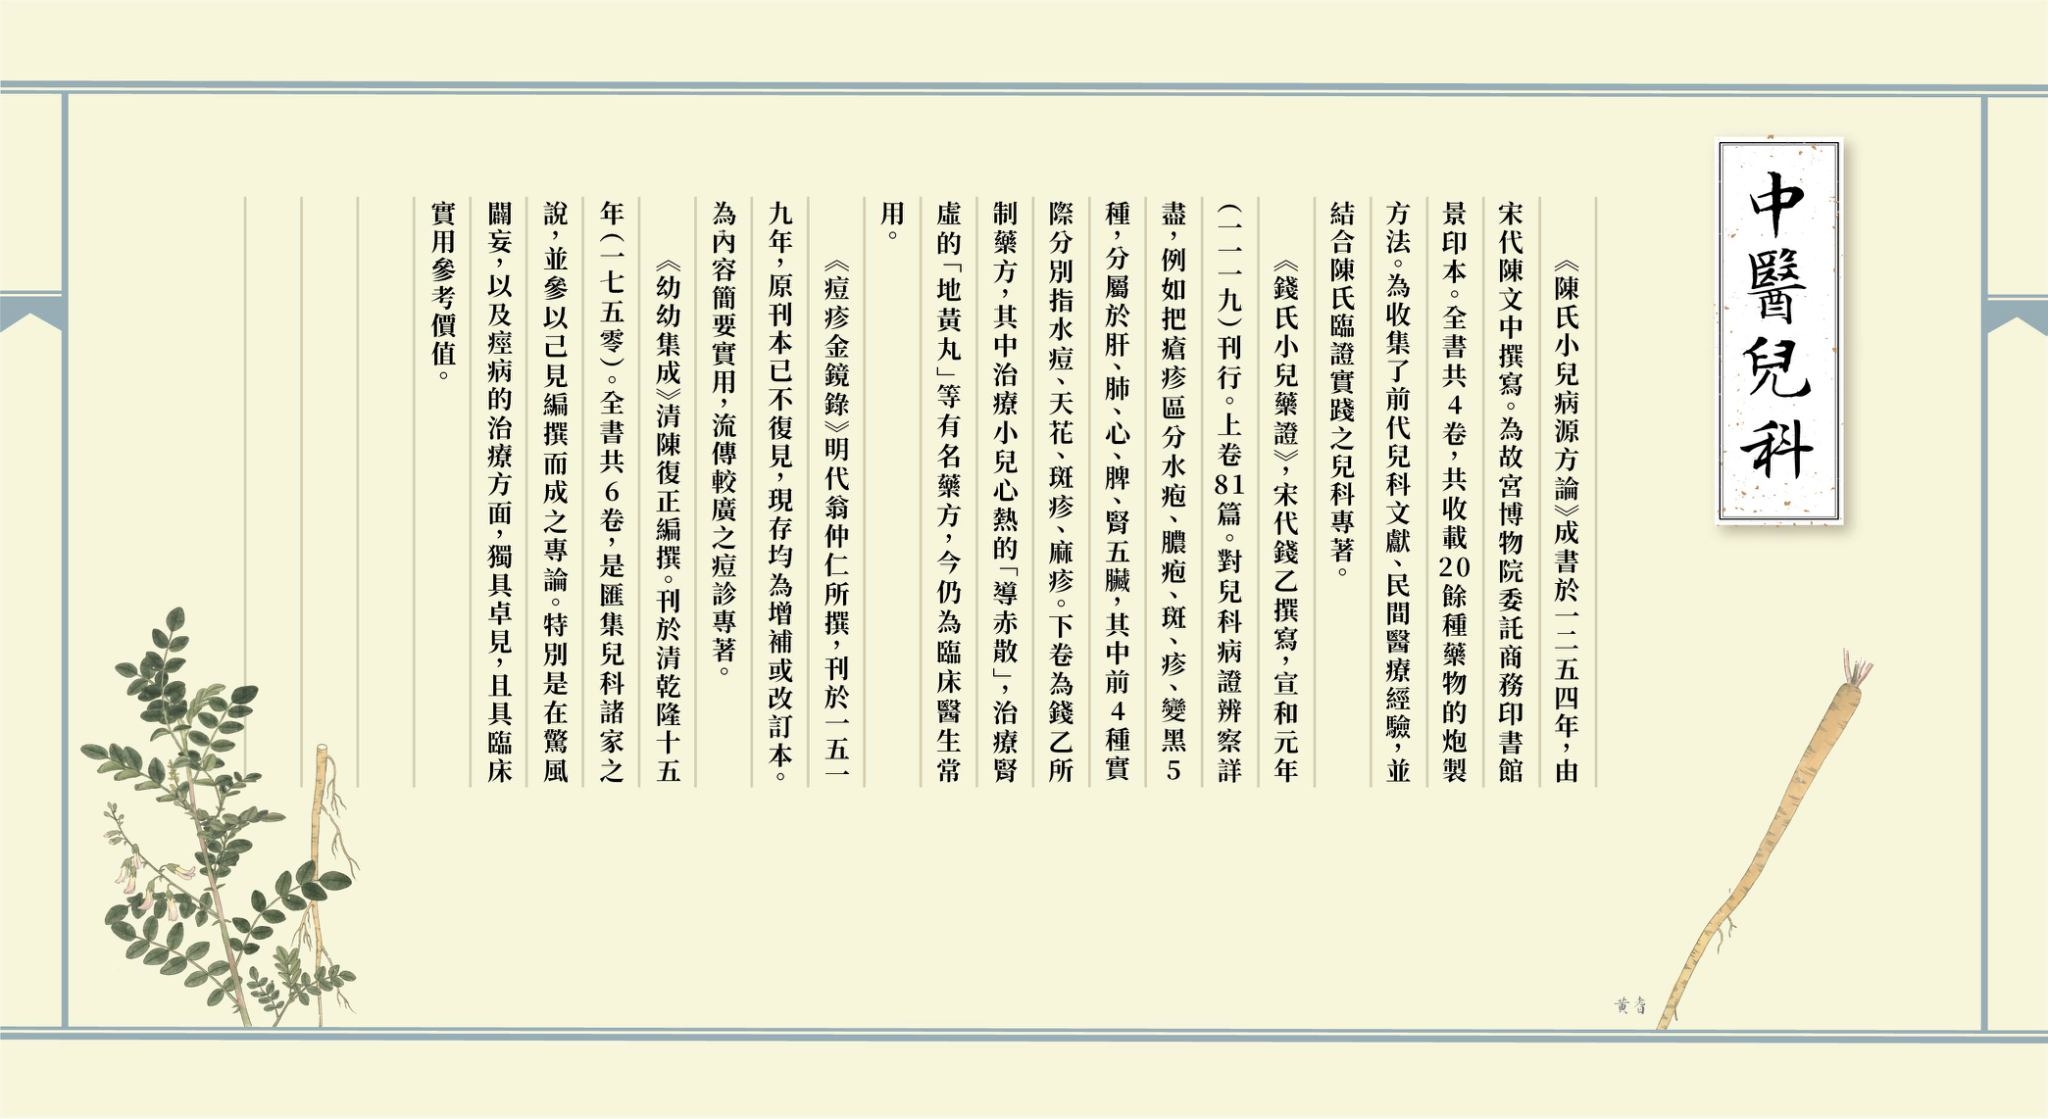 中醫兒科
《陳氏小兒病源方論》成書於一二五四年，由
宋代陳文中撰寫。為故宮博物院委託商務印書館
景印本。全書共4卷，共收載20餘種藥物的炮製
方法。為收集了前代兒科文獻、民間醫療經驗，並
結合陳氏臨證實踐之兒科專著。
《錢氏小兒藥證》，宋代錢乙撰寫，宣和元年
（一一一九）刊行。上卷81篇。對兒科病證辨察詳
盡，例如把瘡疹區分水疱、膿疱、斑、疹、變黑5
種，分屬於肝、肺、心、脾、腎五臟，其中前4種實
際分別指水痘、天花、斑疹、麻疹。下卷為錢乙所
制藥方，其中治療小兒心熱的「導赤散」，治療腎
虛的「地黃丸」等有名藥方，今仍為臨床醫生常
用。
《痘疹金鏡錄》明代翁仲仁所撰，刊於一五一
九年，原刊本已不復見，現存均為增補或改訂本。
為內容簡要實用，流傳較廣之痘診專著。
《幼幼集成》清陳復正編撰。刊於清乾隆十五
年（一七五零）。全書共6卷，是匯集兒科諸家之
說，並參以己見編撰而成之專論。特別是在驚風
闢妄，以及痙病的治療方面，獨具卓見，且具臨床
實用參考價值。
黃耆